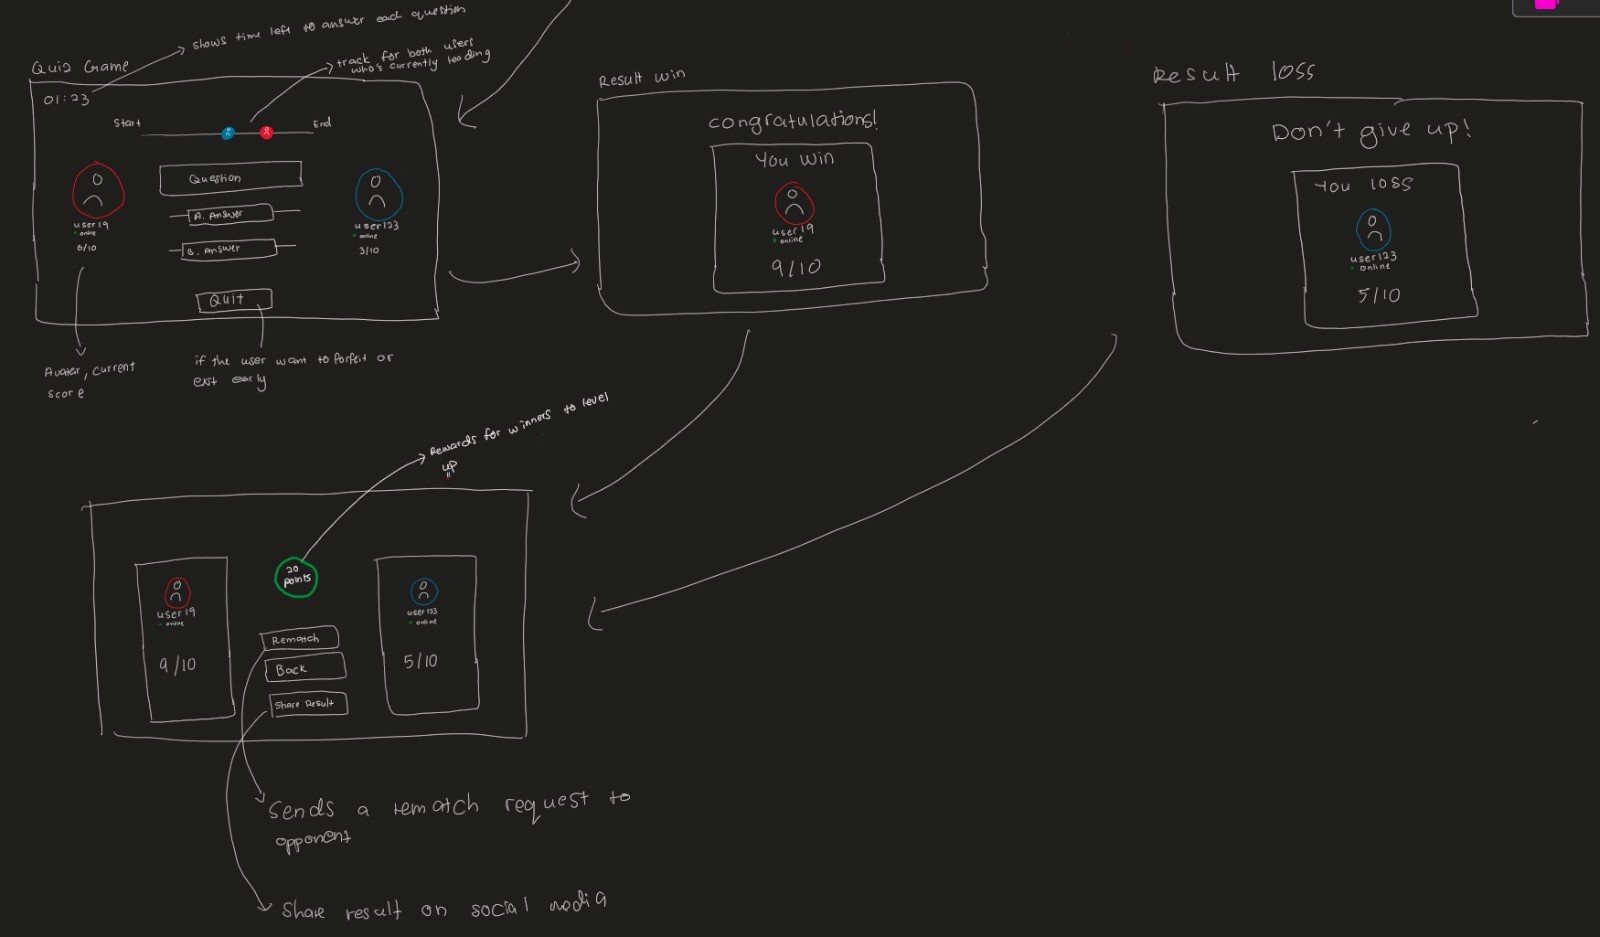 shows time left to answer each question
track for both users
who's currently leading
Quiz Game
01:23
Start
End
Question
A. Answer
B. Answer
user19
online
6/10
user123
online
3/10
Quit
Avatar, current
score
if the user want to forfeit or
exit early
Result win
congratulations!
You Win
user19
online
9/10
Result loss
Don't give up!
You loss
user123
online
5/10
Rewards for winners to level
up
20
points
user19
online
9/10
Rematch
Back
Share Result
user123
online
5/10
Sends a rematch request to
opponent
Share result on social media